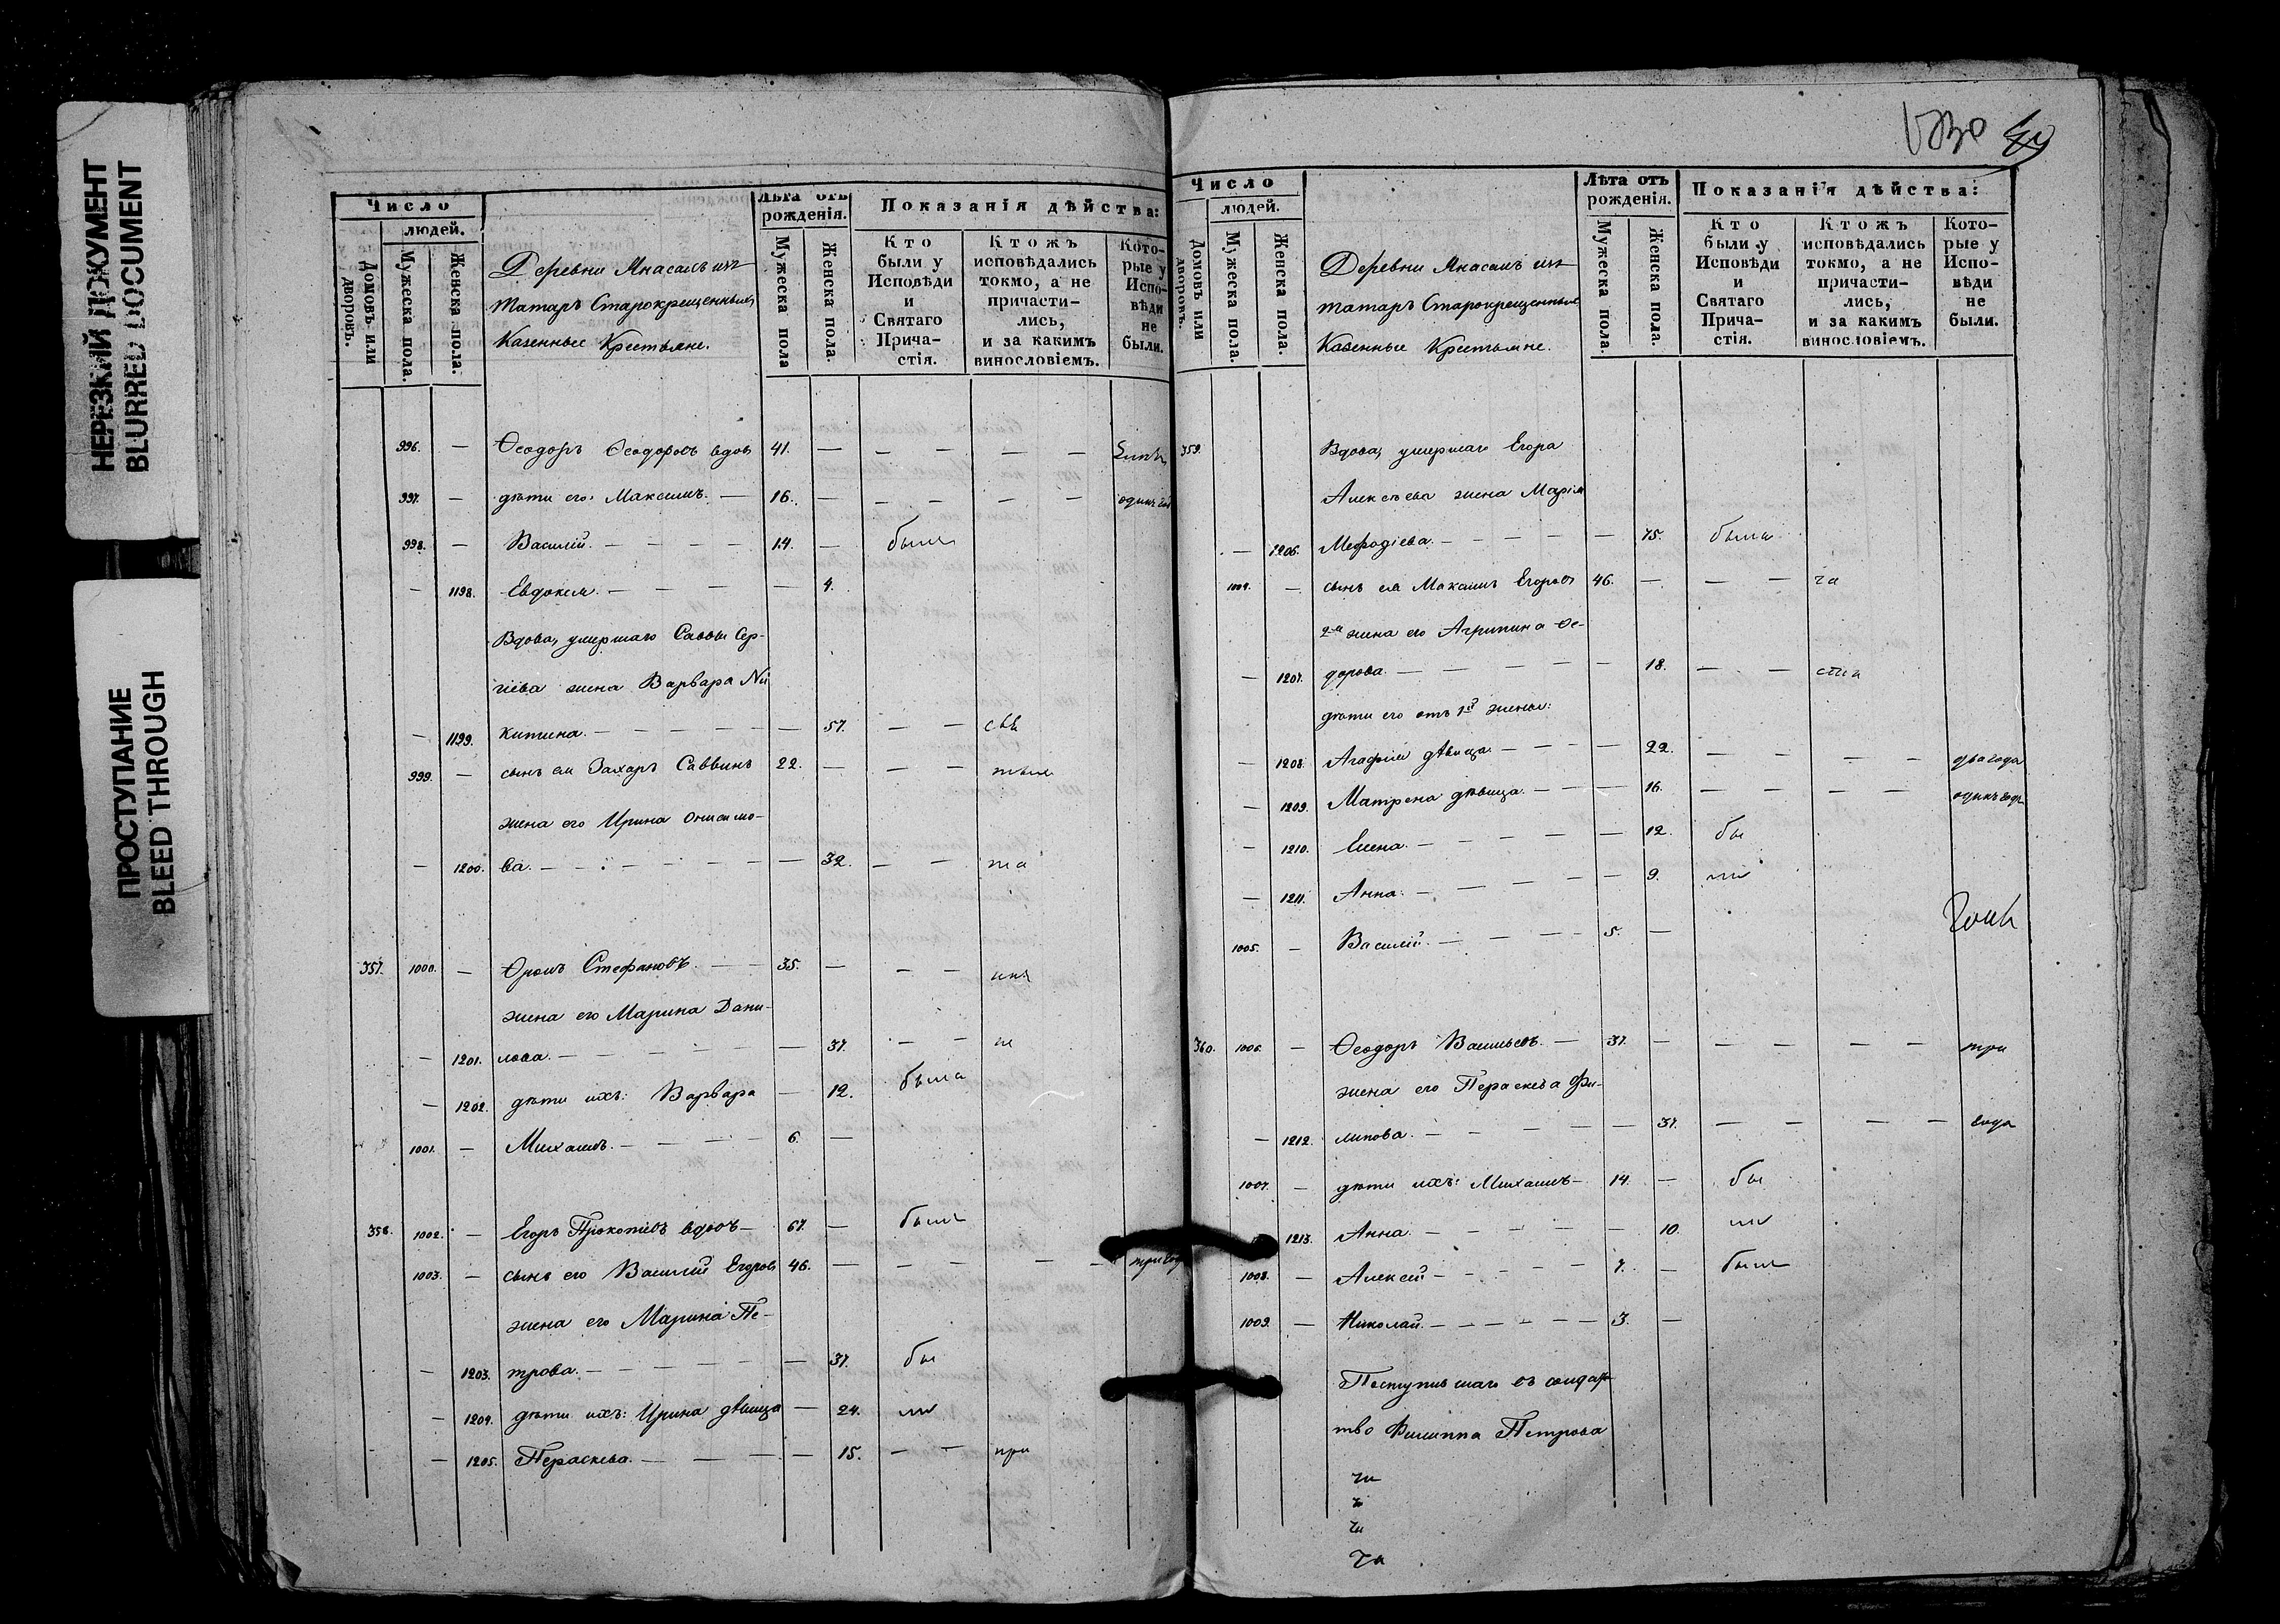 НЕРЕЗКИЙ ДОКУМЕНТ
BLURRED DOCUMENT
ПРОСТУПАНИЕ
BLEED THROUGH
Число
людей.
Домовъ или дворовъ.
Мужеска пола.
Женска пола.
Деревни Янасалъ изъ
татаръ Старокрещенныхъ
Казенные Крестьяне.
Лѣта отъ рожденія.
Мужеска пола
Женска пола.
Показанія дѣйства:
Кто были у Исповѣди и Святаго Прича-стія.
Ктожъ исповѣдались токмо, а не причасти-лись, и за какимъ винословіемъ.
Кото-рые у Испо-вѣди не были.
996. — Ѳеодоръ Ѳеодоровъ вдов 41. — — — — —
997. — дѣти его: Максимъ. — 16. — — — — — одинъ год
998. — Василій. — — — — 14. — были
— 1198. Евдокея. — — — — 4.
Вдова, умершаго Саввы Сер-
гіева жена Варвара Ни
— 1199. китина. — — — — — — 57. — — свя
999. — сынъ ея Захаръ Саввинъ 22. — — — тыя
жена его Ирина Онисимо-
— 1200. ва. — — — — — — — 32. — — та
357. 1000. — Ѳролъ Стефановъ. — — 35. — — — ины
жена его Марина Дани-
— 1201. лова. — — — — — — 37. — —
— 1202. дѣти ихъ: Варвара — 12. была
1001. — Михаилъ. — — — — 6. —
358. 1002. — Егоръ Прокопіевъ вдовъ — 67. — былъ
1003. — сынъ его Василій Егоровъ 46. — — — — — три год
жена его Марина Пе-
— 1203. трова. — — — — — — 37. бы
— 1204. дѣти ихъ: Ирина дѣвица — 24. ли
— 1205. Параскева. — — — — 15. — — при
1230
Число
людей.
Домовъ или дворовъ.
Мужеска пола.
Женска пола.
Деревни Янасалъ изъ
татаръ Старокрещенные
Казенные Крестьяне.
Лѣта отъ рожденія.
Мужеска пола.
Женска пола.
Показанія дѣйства:
Кто были у Исповѣди и Святаго Прича-стія.
Ктожъ исповѣдались токмо, а не причасти-лись, и за какимъ винословіемъ.
Кото-рые у Испо-вѣди не были.
359. Вдова, умершаго Егора
Алексѣева жена Марія
— 1206. Меѳодіева. — — — — — 75. была
1004. — сынъ ея Максимъ Егоровъ 46. — — — ча
2я жена его Агрипина Ѳе-
— 1207. дорова. — — — — — 18. — — сти
дѣти его отъ 1й жены:
— 1208. Агафія дѣвица. — — — — 22. — — — — два года
— 1209. Матрена дѣвица. — — — 16. — — — — одинъ годъ
— 1210. Елена. — — — — — 12. бы
— 1211. Анна. — — — — — 9. ли
1005. — Василій. — — — — 5. —
360. 1006. — Ѳеодоръ Васильевъ. — 37. — — — — — три
жена его Параскева Фи-
— 1212. липова. — — — — — 37. — — — — года
1007. — дѣти ихъ: Михаилъ — 14. — бы
1213. Анна. — — — — — 10. ли
1008. — Алексѣй — — — — 7. — были
1009. — Николай. — — — — — 3. —
Поступившаго въ солдат-
тво Филиппа Петрова